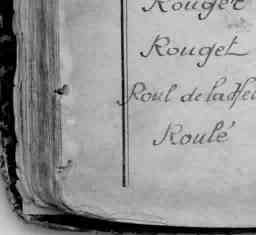 Rouger
Rouget
Roul de la
Roulé